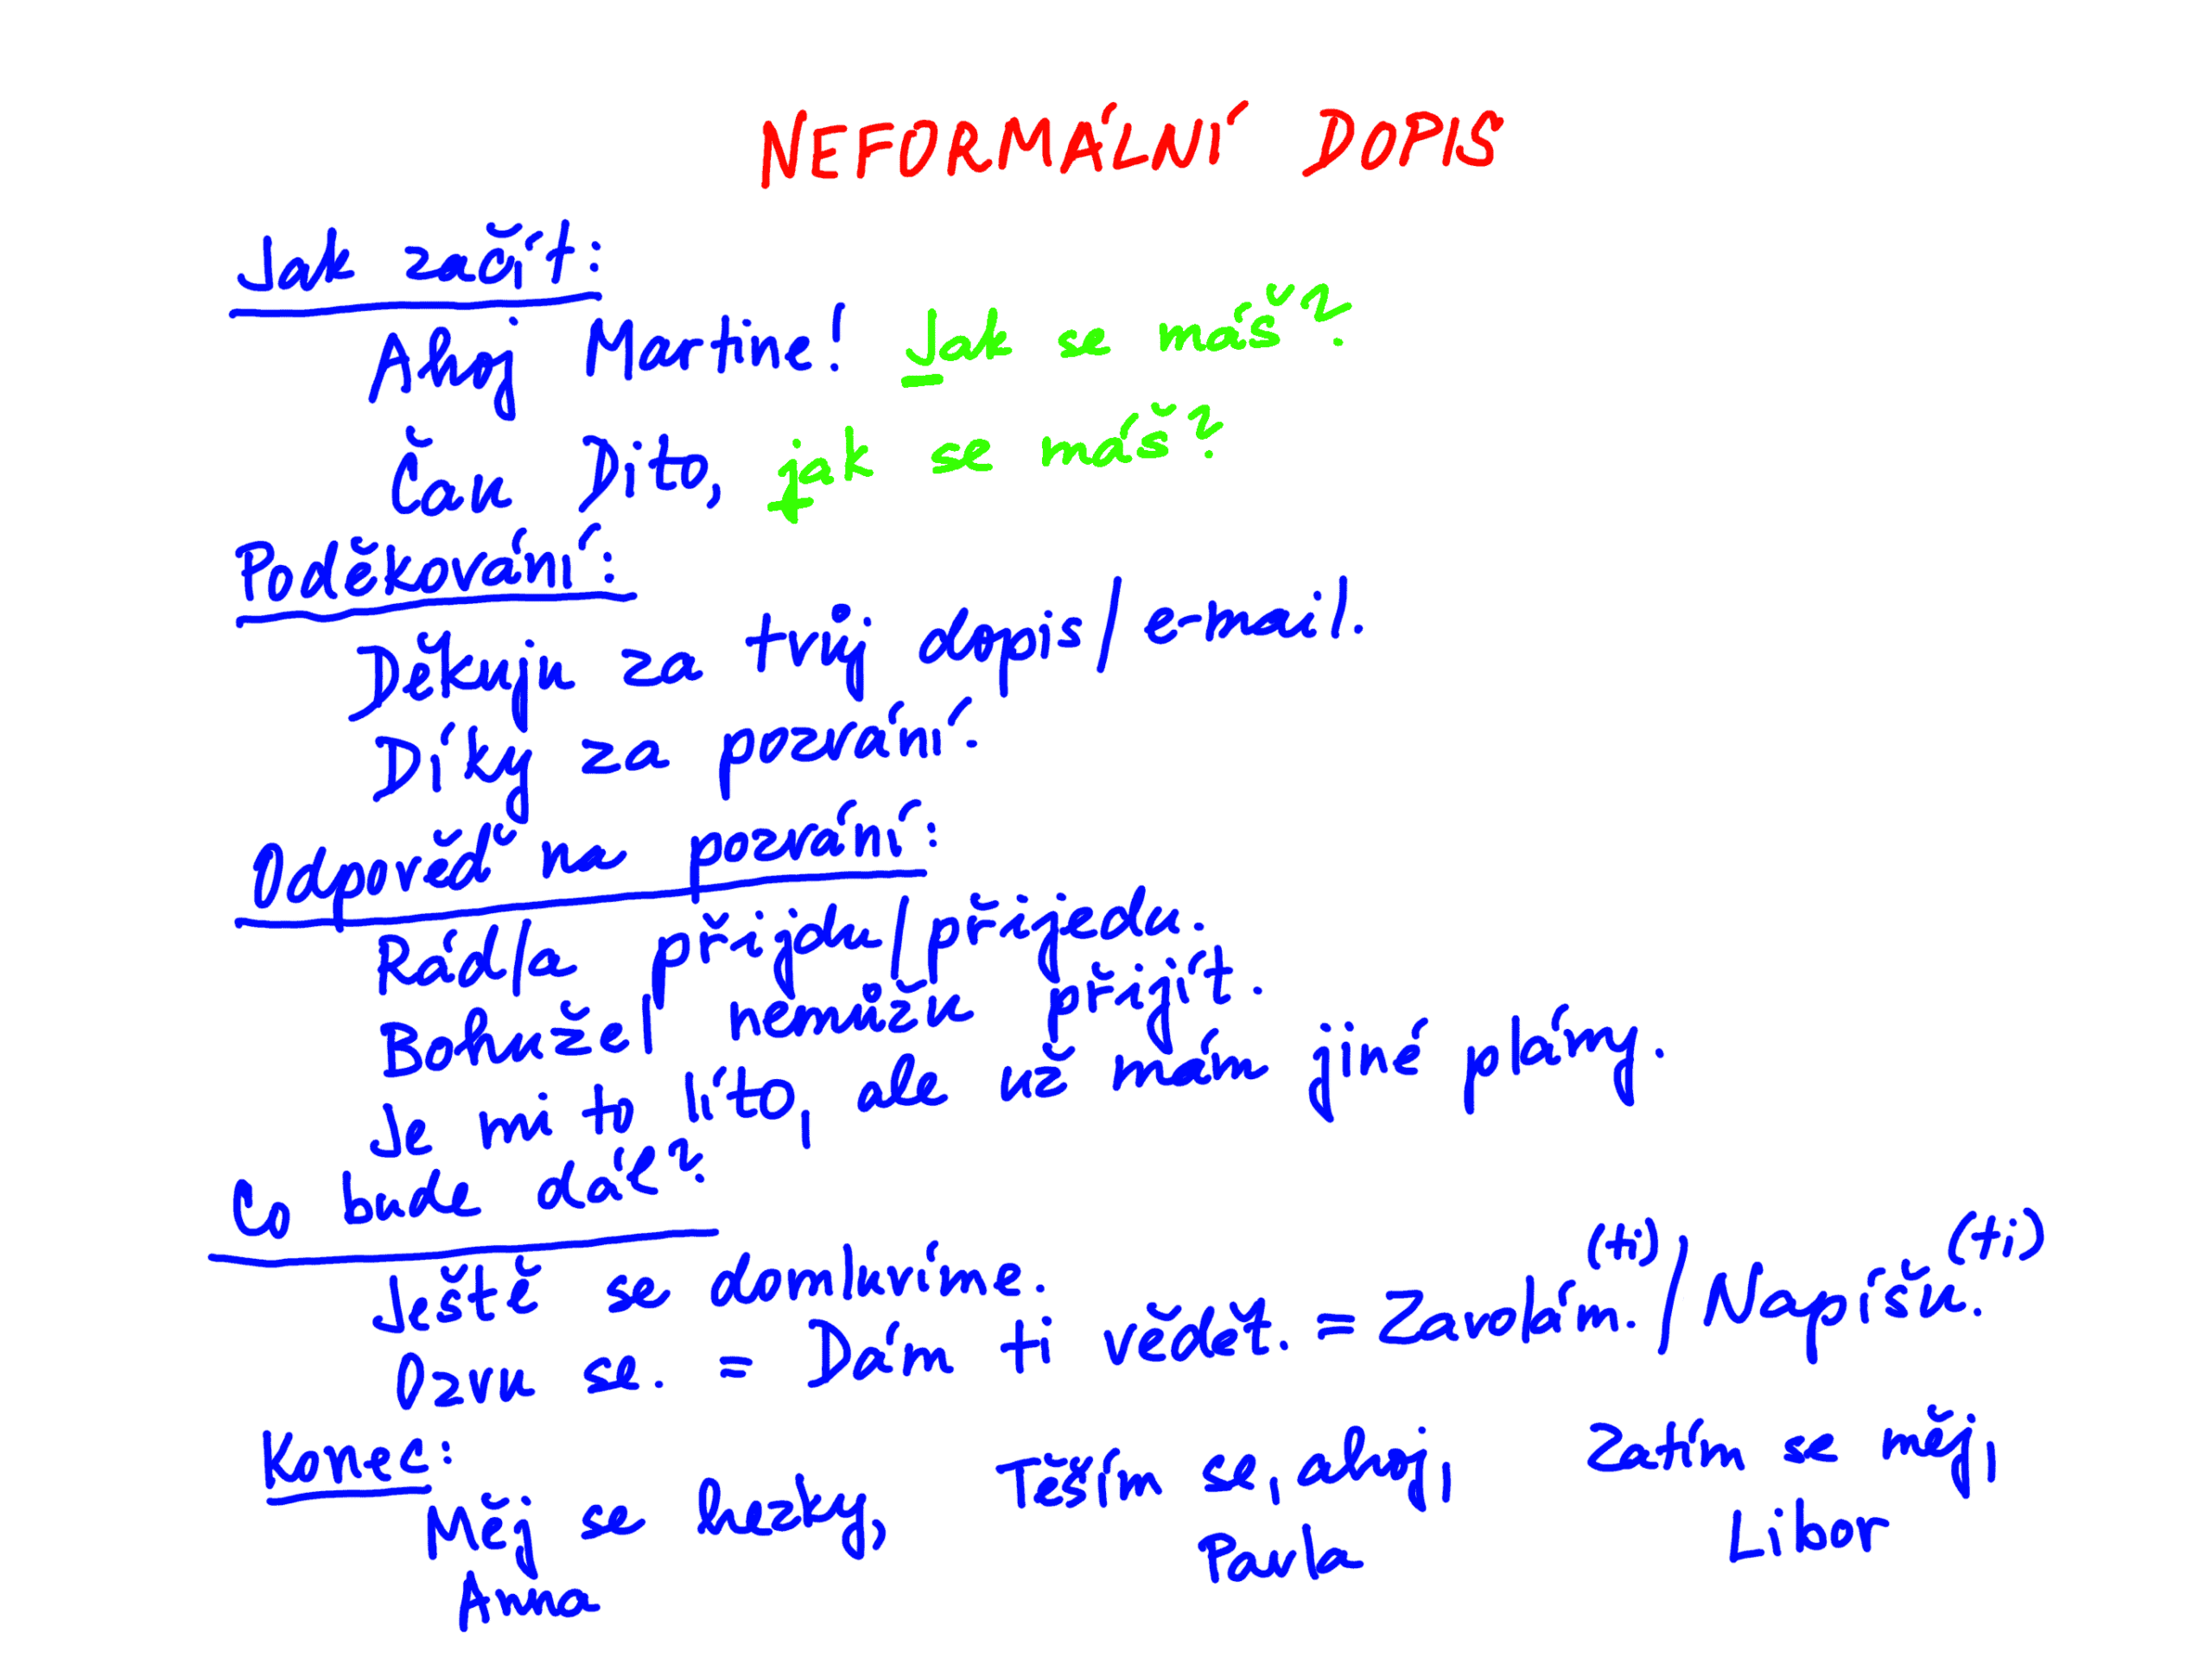 NEFORMÁLNÍ DOPIS
Jak začít:
Ahoj Martine! Jak se máš?
Čau Dito, jak se máš?
Poděkování:
Děkuju za tvůj dopis/e-mail.
Díky za pozvání.
Odpověď na pozvání:
Rád/a přijdu/přijedu.
Bohužel nemůžu přijít.
Je mi to líto, ale už mám jiné plány.
Co bude dál?
Ještě se domluvíme.
Ozvu se. = Dám ti vědět. = Zavolám (ti). / Napíšu (ti).
Konec:
Měj se hezky, Těším se, ahoj, Zatím se měj,
Anna Pavla Libor